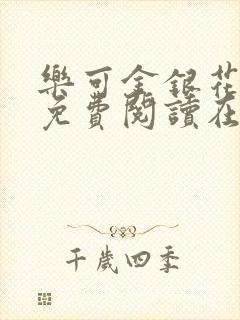 樂可金銀花
免費閱讀在
千歲四季